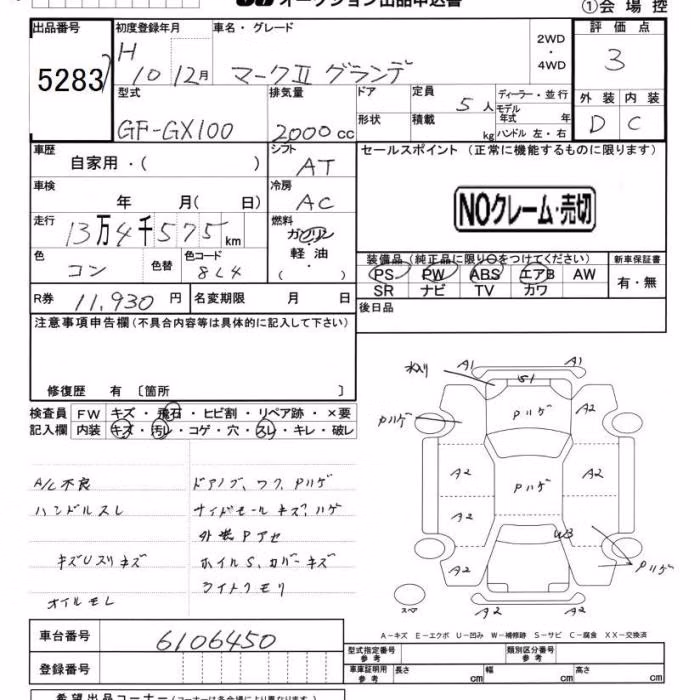 オークション出品申込書
①会場控
出品番号 初度登録年月 車名・グレード 2WD・4WD 評価点
5283 H 10 12月 マークⅡ グランデ 3
型式 排気量 ドア 定員 5人 ディーラー・並行 外装 内装
GF-GX100 2000cc 形状 積載 kg モデル年式 年 D C
ハンドル 左・右
車歴 自家用・( ) シフト AT セールスポイント (正常に機能するものに限ります)
車検 年 月( 日) 冷房 AC
NOクレーム・売切
走行 13万4千575km 燃料 ガソリン・軽油・( )
色 コン 色替 色コード 8L4
装備品 (純正品に限り○をつけてください) 新車保証書
PS PW ABS エアB AW 有・無
SR ナビ TV カワ
R券 11,930円 名変期限 月 日 後日品
注意事項申告欄 (不具合内容等は具体的に記入して下さい)
修復歴 有 〔箇所 〕
検査員 FW キズ・飛石・ヒビ割・リペア跡・×要
記入欄 内装 キズ・汚レ・コゲ・穴・スレ・キレ・破レ
A/C不良 ドアノブ、フク、Pハゲ
ハンドルスレ サイドモールキズ、ハゲ
外装Pアセ
キズUスリキズ ホイルS、カバーキズ
ライトクモリ
オイルモレ
水入り A1 A1
S1
Pハゲ Pハゲ A2
A2 Pハゲ A2
A2
W3
A2 Pハゲ
スマ A2 A2
A-キズ E-エクボ U-凹み W-補修跡 S-サビ C-腐食 XX-交換済
車台番号 6106450
登録番号
型式指定番号 参考 類別区分番号 参考
車庫証明用 参考 長さ cm 幅 cm 高さ cm
希望出品コーナー (コーナーは各会場により異なります)